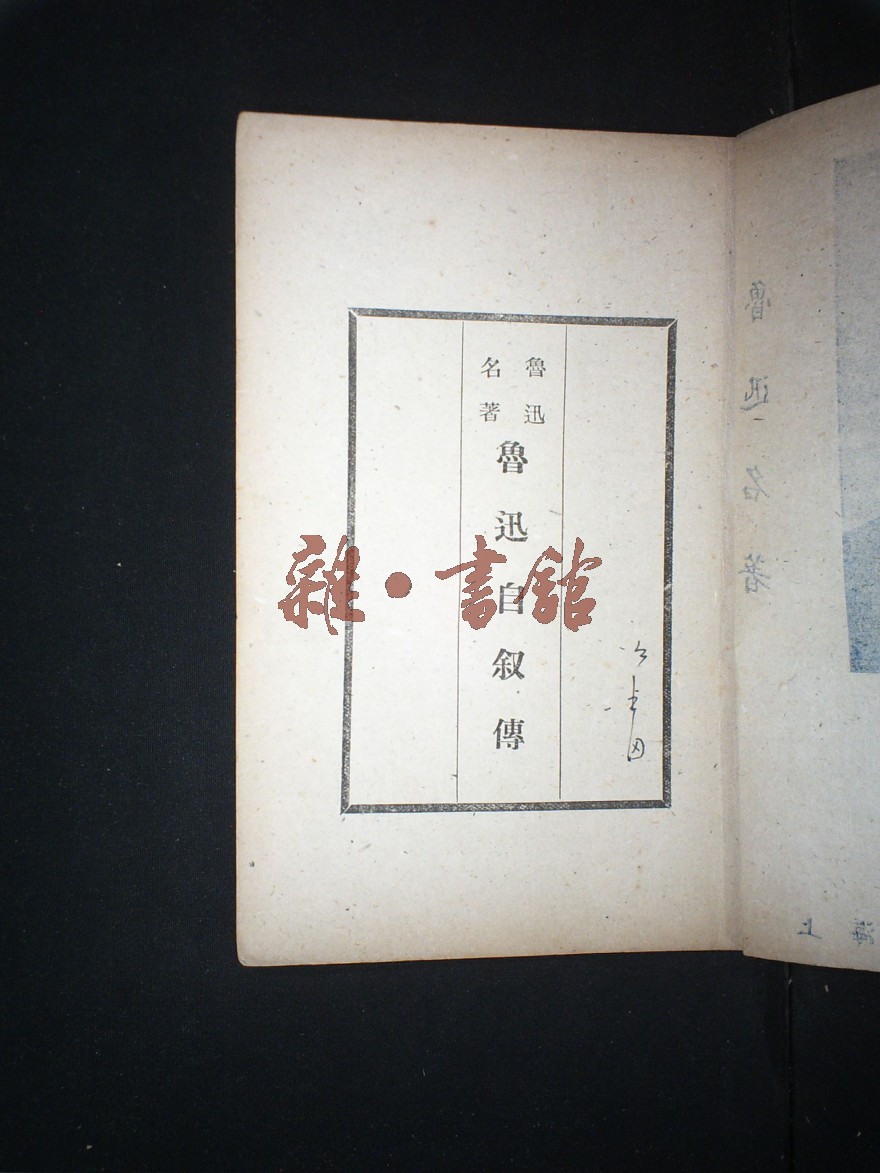 魯迅名著
魯迅
名著
魯迅自叙傳
雜·書館
上海